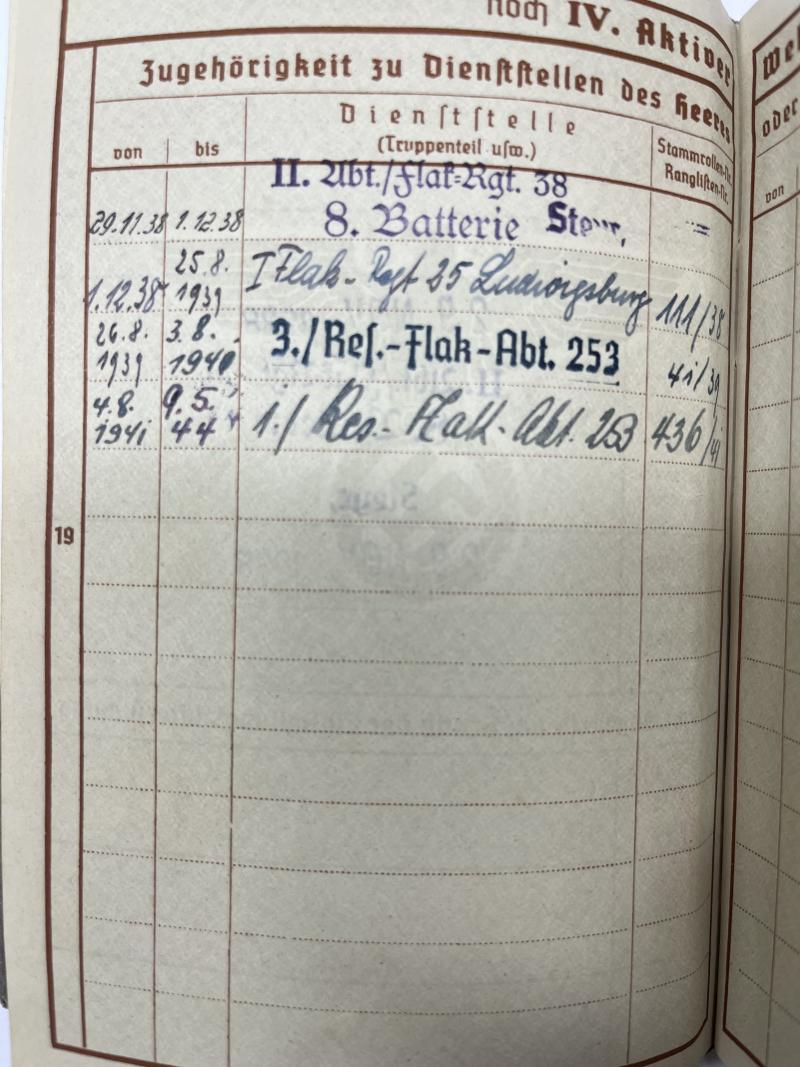 noch IV. Aktiver
Zugehörigkeit zu Dienststellen des Heeres
von
bis
Dienststelle
(Truppenteil usw.)
Stammrollen-Nr.
Ranglisten-Nr.
II. Abt./Flak-Rgt. 38
29.11.38 1.12.38 8. Batterie Steyr,
1.12.38 25.8. 1939 I Flak-Rgt 25 Ludwigsburg 111/38
26.8. 1939 3.8. 1940 3./Res.-Flak-Abt. 253 41/39
4.8. 1941 9.5. 44 1./ Res.-Flak-Abt. 253 436/41
19
oder
von